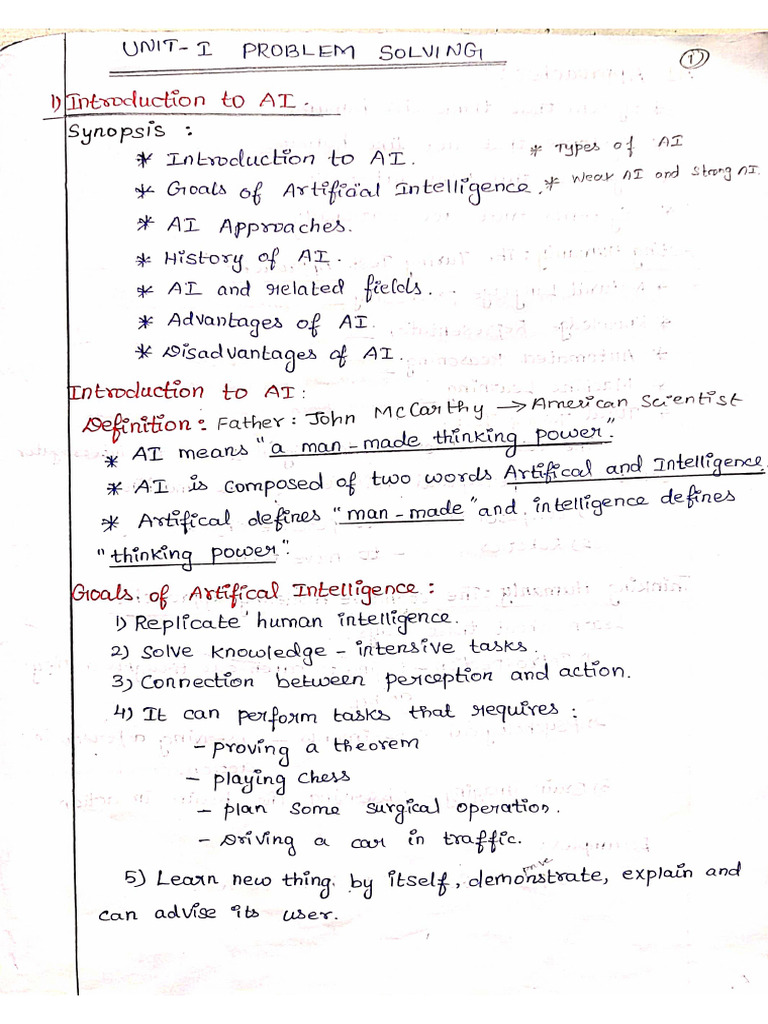 UNIT-I PROBLEM SOLVING
1
1) Introduction to AI.
Synopsis :
* Introduction to AI.
* Types of AI
* Goals of Artificial Intelligence.
* Weak AI and Strong AI.
* AI Approaches.
* History of AI.
* AI and related fields...
* Advantages of AI.
* Disadvantages of AI.
Introduction to AI:
Definition: Father: John McCarthy → American Scientist
* AI means "a man-made thinking power".
* AI is composed of two words Artifical and Intelligence.
* Artifical defines "man-made" and intelligence defines
"thinking power".
Goals of Artifical Intelligence :
1) Replicate human intelligence.
2) Solve knowledge-intensive tasks.
3) Connection between perception and action.
4) It can perform tasks that requires :
- proving a theorem
- playing chess
- plan some surgical operation.
- Driving a car in traffic.
5) Learn new thing by itself, demonstrate, explain and
can advise its user.